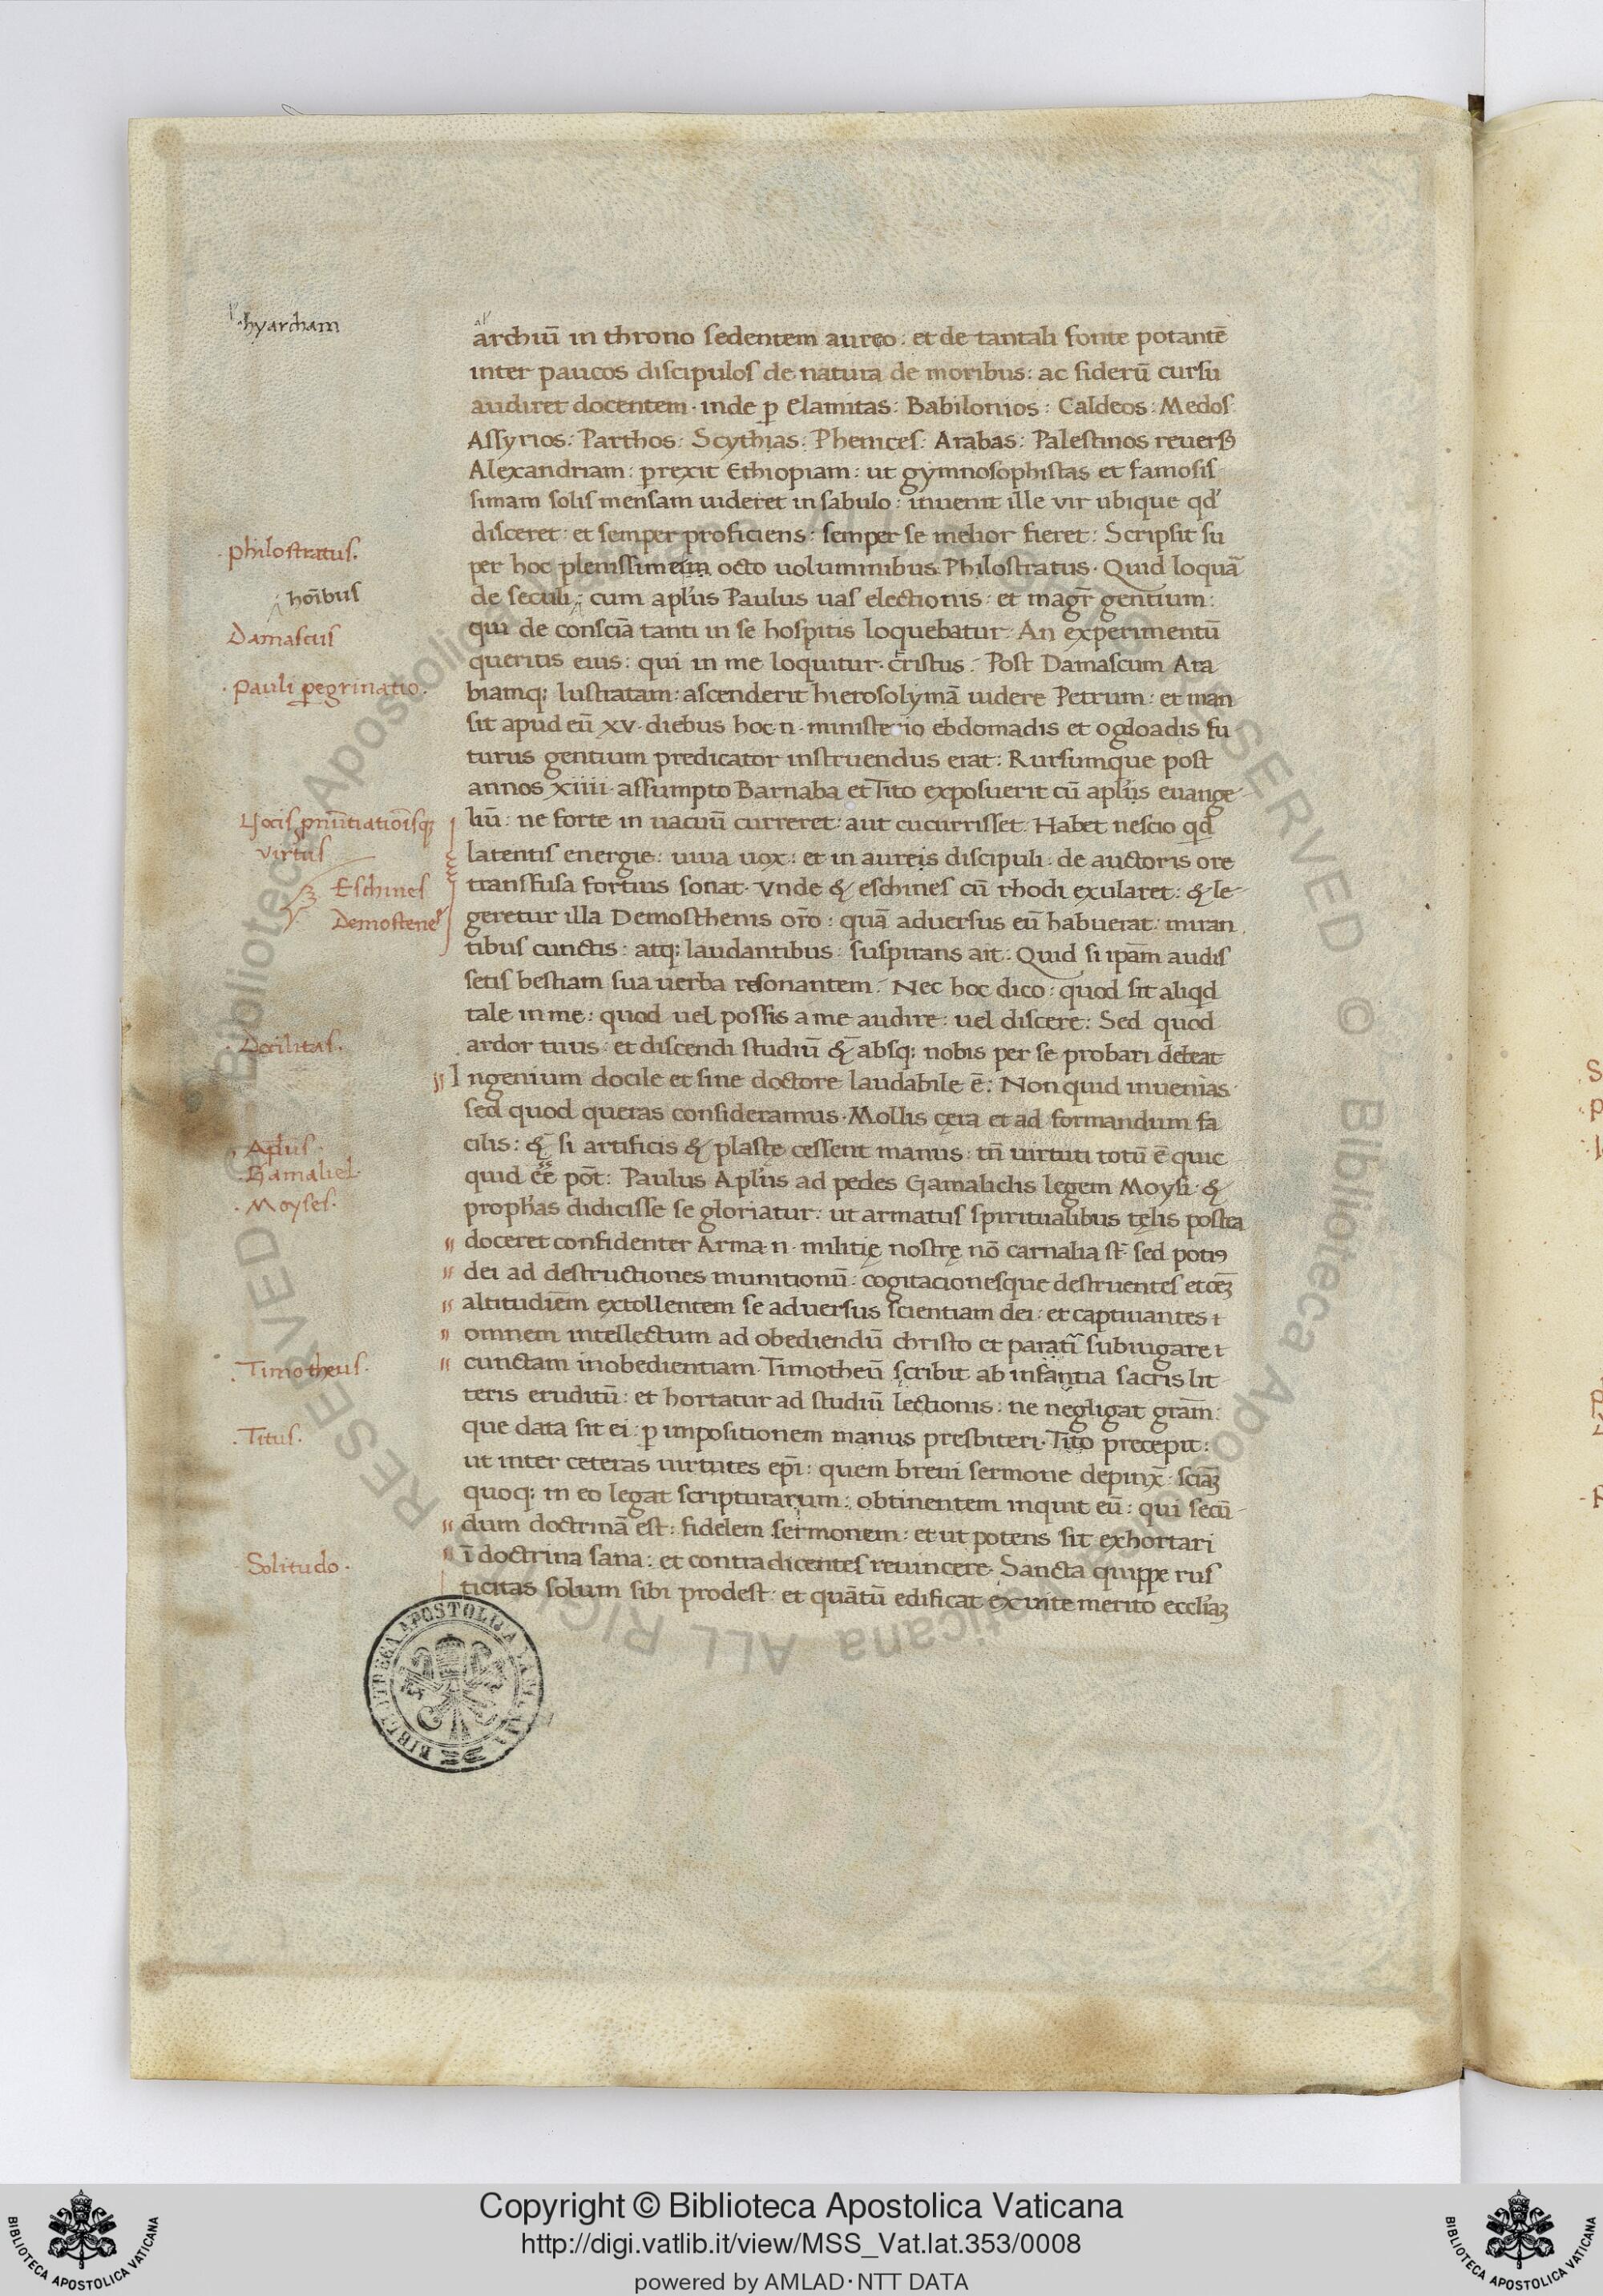 hyarcham
archiū in throno sedentem aureo: et de tantali fonte potantē
inter paucos discipulos de natura de moribus: ac siderū cursu
audiret docentem· inde ꝑ Elamitas: Babilonios: Caldeos: Medos
Assyrios: Parthos: Scythias: Phenices: Arabas: Palestinos reuersꝰ
Alexandriam: ꝑrexit Ethiopiam: ut gymnosophistas et famosis
simam solis mensam uideret in sabulo: inuenit ille vir ubique qđ
disceret: et semper proficiens: semper se melior fieret: Scripsit su
per hoc plenissime octo uoluminibus Philostratus· Quid loquā
de seculi: cum apl̄us Paulus uas electionis: et magr̄ gentium:
qui de conscīa tanti in se hospitis loquebatur: An experimentū
queritis eius: qui in me loquitur· cr̄istus: Post Damascum Ara
biamq; lustratam: ascenderit hierosolymā uidere Petrum: et man
sit apud eū xv· diebus hoc·n· ministerio ebdomadis et ogdoadis fu
turus gentium predicator instruendus erat: Rursumque post
annos xiiii· assumpto Barnaba et Tito exposuerit cū apl̄is euange
liū: ne forte in uacuū curreret: aut cucurrisset: Habet nescio qđ
latentis energie: uiua uox: et in aureis discipuli: de auctoris ore
transfusa fortius sonat· Vnde & eschines cū rhodi exularet: & le
geretur illa Demosthenis or̄o: quā aduersus eū habuerat: miran
tibus cunctis: atq; laudantibus: suspirans ait: Quid si ipam̄ audis
setis bestiam sua uerba resonantem: Nec hoc dico: quod sit aliqd
tale in me: quod uel possis a me audire: uel discere: Sed quod
ardor tuus: et discendi studiū & absq; nobis per se probari debeat
Ingenium docile et sine doctore laudabile ē: Non quid inuenias
sed quod queras consideramus· Mollis cęra et ad formandum fa
cilis: & si artificis & plastę cessent manus: tn̄ uirtuti totū ē quic
quid ēē pōt: Paulus Apl̄us ad pedes Gamalielis legem Moysi &
proph̄as didicisse se gloriatur: ut armatus spiritualibus tęlis postea
doceret confidenter Arma·n· militię nostrę nō carnalia st̄ sed potiꝰ
dei ad destructiones munitionū: cogitacionesque destruentes et oēꝫ
altitudiem extollentem se aduersus scientiam dei: et captiuantes
omnem intellectum ad obediendū christo et parati subiugare
cunctam inobedientiam· Timotheū scribit ab infantia sacris lit
teris eruditū: et hortatur ad studiū lectionis: ne negligat gram̄:
que data sit ei: ꝑ impositionem manus presbiteri· Tito precepit:
ut inter ceteras uirtutes epī: quem breui sermone depinx̄: scīaꝫ
quoq; in eo legat scripturarum: obtinentem inquit eū: qui secū
dum doctrinā est: fidelem sermonem: et ut potens sit exhortari
ī doctrina sana: et contradicentes reuincere· Sancta quippe rus
ticitas solum sibi prodest: et quātū edificat ex uite merito eccl̄iaꝫ
philostratus.
hoībus
Damascus
Pauli ꝑegrinatio·
Vocis ꝓnūtiatioīsq;
virtus
Eschines
Demostenes
Docilitas.
Apl̄us·
Gamaliel·
Moyses·
Timotheus·
Titus·
Solitudo·
© Biblioteca Apostolica Vaticana ALL RIGHTS RESERVED
Copyright © Biblioteca Apostolica Vaticana
http://digi.vatlib.it/view/MSS_Vat.lat.353/0008
powered by AMLAD·NTT DATA
BIBLIOTECA APOSTOLICA VATICANA
BIBLIOTECA APOSTOLICA VATICANA